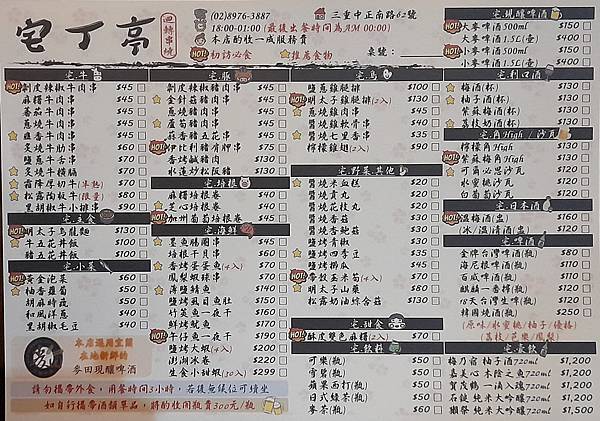 宅丁亭
迴轉串燒
(02)8976-3887
三重中正南路62號
18:00-01:00 (最後出餐時間為AM 00:00)
本店酌收一成服務費
初訪必食
推薦食物
桌號：
宅.牛
剝皮辣椒牛肉串 $45
麻糬牛肉串 $45
蕃茄牛肉串 $45
蔥燒牛肉串 $45
韭香牛肉串 $45
炙燒牛肋串 $80
鹽蔥牛舌串 $70
炙燒牛橫膈 $70
霜降厚切牛(半熟) $70
松露陶板牛(限量) $80
黑胡椒牛小排串 $90
宅.主食
明太子烏龍麵 $130
牛五花丼飯 $100
豬五花丼飯 $100
宅.小菜
黃金泡菜 $60
柚香蘿蔔 $50
胡麻時蔬 $50
和風洋蔥 $40
黑胡椒毛豆 $40
本店選用宜蘭
在地新鮮的
麥田現釀啤酒
宅.豚
剝皮辣椒豬肉串 $45
金針菇豬肉串 $45
蔥燒豬肉串 $45
蘆筍豬肉串 $45
蒜香豬五花串 $45
伊比利豬肋串 $75
香烤鹹豬肉 $130
水蓮炒松阪豬 $130
宅.培根
麻糬培根卷 $40
芝心培根卷 $40
加州葡萄培根卷 $40
宅.海鮮
墨魚腸團串 $45
培根干貝串 $60
香烤蛋蛋魚(4入) $70
鳳梨蝦球串 $70
薄鹽鯖魚串 $50
鹽烤虱目魚肚 $150
竹莢魚一夜干 $160
鮮烤魷魚 $170
午仔魚一夜干 $190
鹽烤大蝦(4入) $200
澎湖冰卷 $220
生食小甜蝦(30入) $299
宅.鳥
鹽蔥雞腿排 $100
明太子雞腿排(2入)
蔥燒雞肉串
醬燒雞軟骨串
醬燒七里香串
檸檬雞翅(2入)
宅.野菜.其他
醬燒米血糕
醬燒貢丸
醬燒花枝丸
醬燒香菇
醬燒杏鮑菇
鹽烤青椒
鹽烤四季豆
鹽烤櫛瓜
帶紋玉米筍(4入)
明太子山藥
松露奶油綜合菇
宅.甜食
酥皮雙色麻糬(2入) $70
宅.飲料
可樂(瓶)
雪碧(瓶)
蘋果西打(瓶)
日式綠茶(瓶)
麥茶(瓶) $60
宅.現釀啤酒
大麥啤酒500ml $150
大麥啤酒1.5L(壺) $400
小麥啤酒500ml $150
小麥啤酒1.5L(壺) $400
宅.利口酒
梅酒(杯) $130
柚子酒(杯) $130
紫蘇梅酒(杯) $130
荔枝奶酒(杯) $130
宅.角High / 沙瓦
檸檬角High $130
紫蘇梅角High $130
可爾必思沙瓦 $130
水蜜桃沙瓦 $130
白葡萄沙瓦 $130
宅.日本酒
溫梅酒(盅) $160
(冰/溫)清酒(盅) $130
宅.啤酒
金牌台灣啤酒(瓶) $80
海尼根啤酒(瓶) $80
百威啤酒(瓶) $80
麒麟一番搾(瓶) $90
18天台灣生啤(瓶) $90
韓國燒酒(瓶) $250
(原味/水蜜桃/柚子/優格)
(荔枝/芭樂/鳳梨)
宅.長飲
梅乃宿 柚子酒720ml $1,200
嘉美心 木陰之魚720ml $1,200
賀茂鶴 一滴入魂720ml $1,200
石鎚 純米大吟釀720ml $1,200
獺祭 純米大吟釀720ml $1,500
請勿攜帶外食，用餐時間3小時，若後無候位可續坐
如自行攜帶酒類單品，將酌收開瓶費300元/瓶